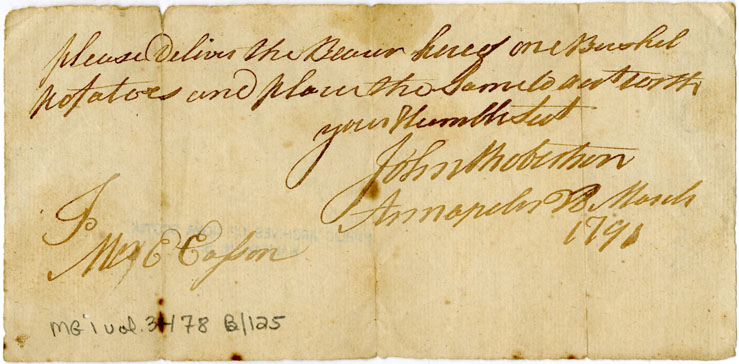 please Deliver the Bearer hereof one Bushel
potatoes and place the Same to acct with
your Humble Sert
John Robertson
Annapolis March
1791
To
Mr E Easson
MG 1 vol. 3478 B/125